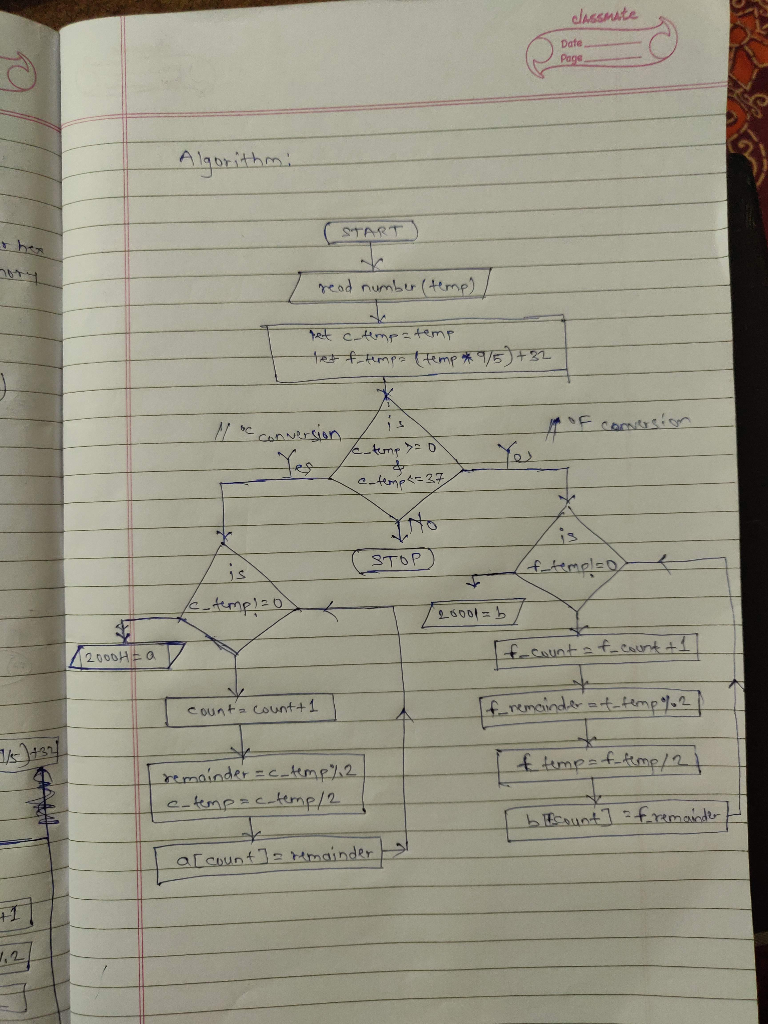 classmate
Date
Page
Algorithm:
START
read number (temp)
let c_temp = temp
let f_temp = (temp * 9/5) + 32
is
c_temp >= 0
&
c_temp <= 37
// °C conversion
Yes
// °F conversion
Yes
No
STOP
is
c_temp != 0
2000H = a
count = count + 1
remainder = c_temp % 2
c_temp = c_temp / 2
a[count] = remainder
is
f_temp != 0
2000H = b
f_count = f_count + 1
f_remainder = f_temp % 2
f_temp = f_temp / 2
b[fcount] = f_remainder
/5) + 32
+1
%.2